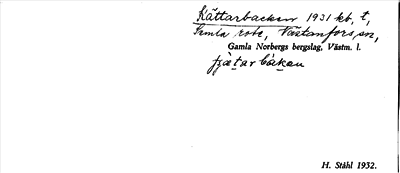 Kättarbacken 1931 kb, t,
Gamla rote, Västanfors sn,
Gamla Norbergs bergslag, Västm. l.
H. Ståhl 1932.